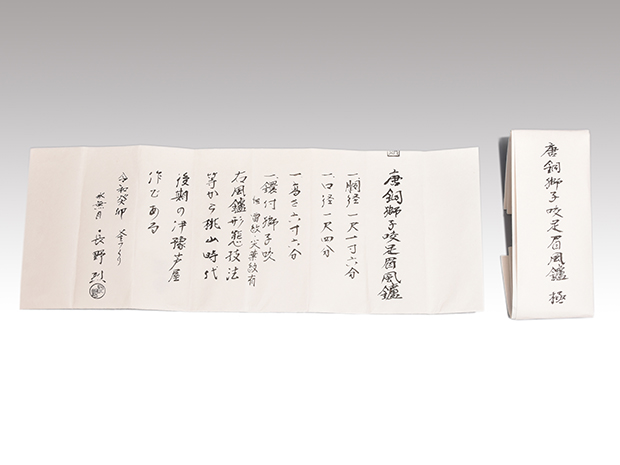 唐銅獅子咬足眉風鑪
一胴径一尺一寸六分
一口径一尺四分
一高さ六寸六分
一鐶付獅子咬
但雷紋・宝華紋有
右風鑪形態技法
等から桃山時代
後期の伊豫芦屋
作である
令和癸卯 釜つくり
水無月 長野烈
唐銅獅子咬足眉風鑪 極